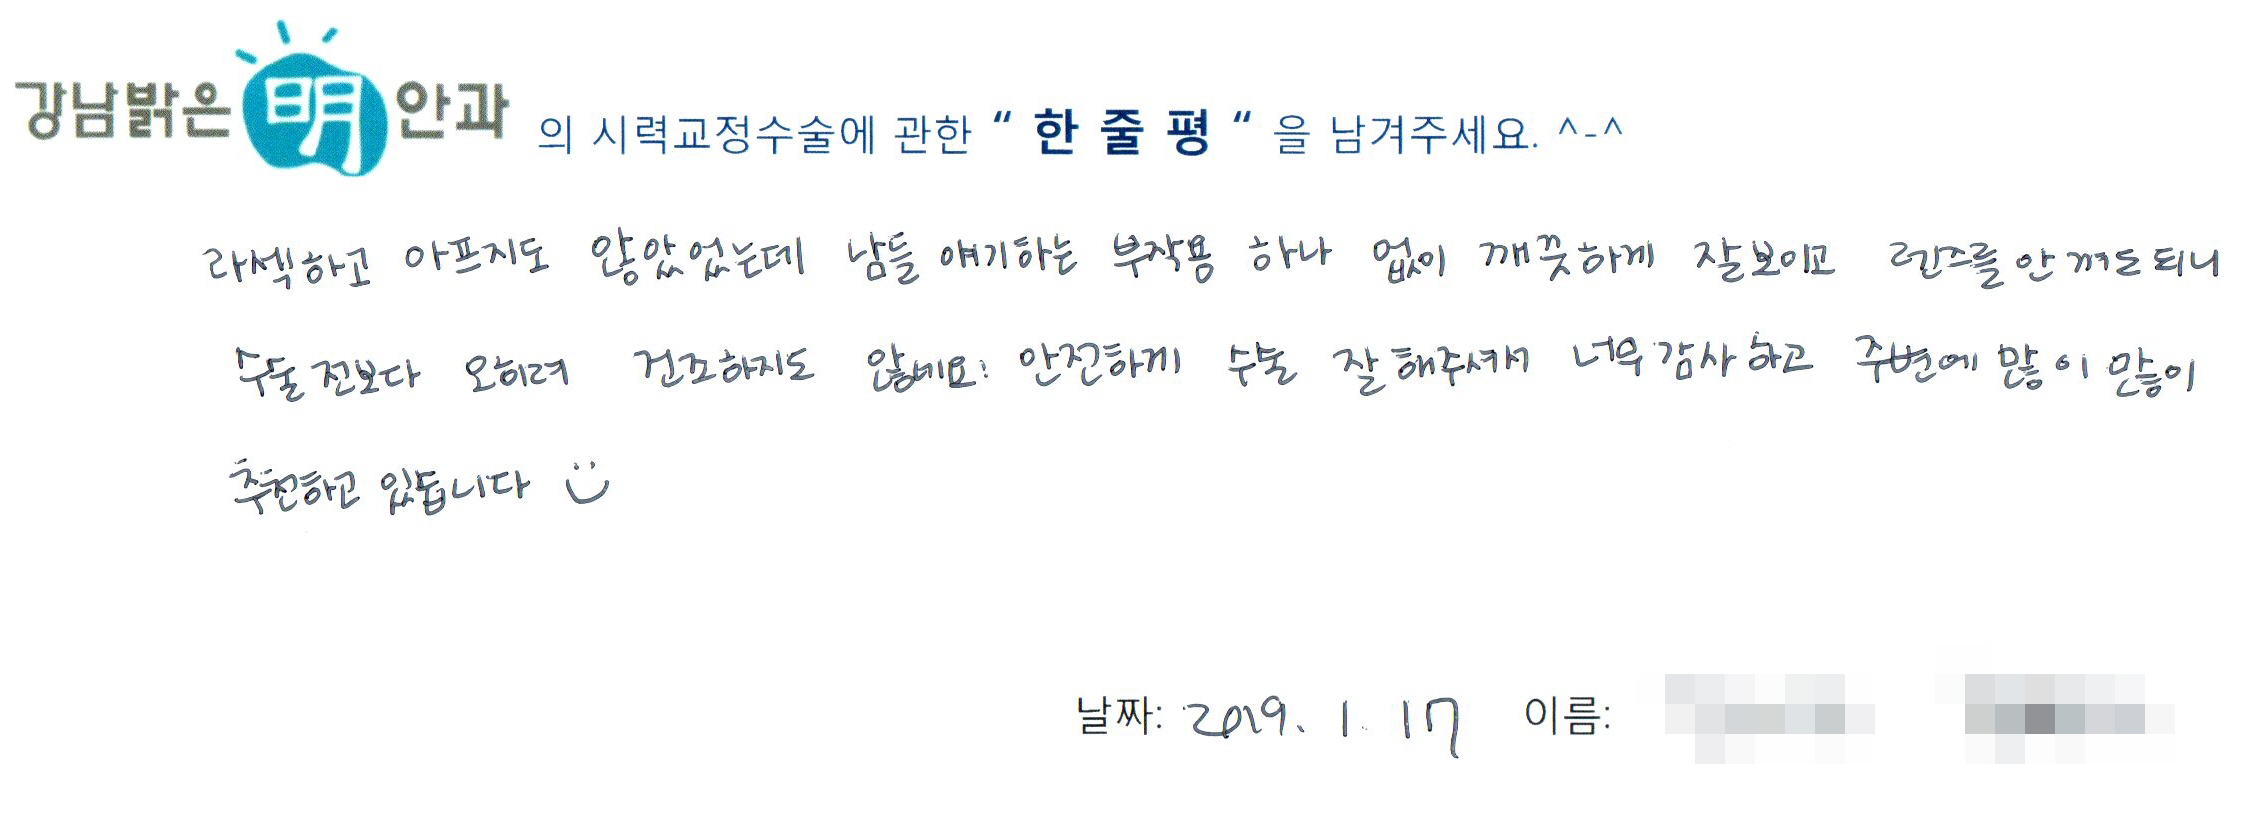 강남밝은明안과 의 시력교정수술에 관한 “ 한 줄 평 “ 을 남겨주세요. ^-^
라섹하고 아프지도 않았었는데 남들 얘기하는 부작용 하나 없이 깨끗하게 잘보이고 렌즈를 안 껴도 되니
수술 전보다 오히려 건조하지도 않네요! 안전하게 수술 잘 해주셔서 너무 감사하고 주변에 많이 많이
추천하고 있습니다
날짜: 2019. 1. 17 이름: